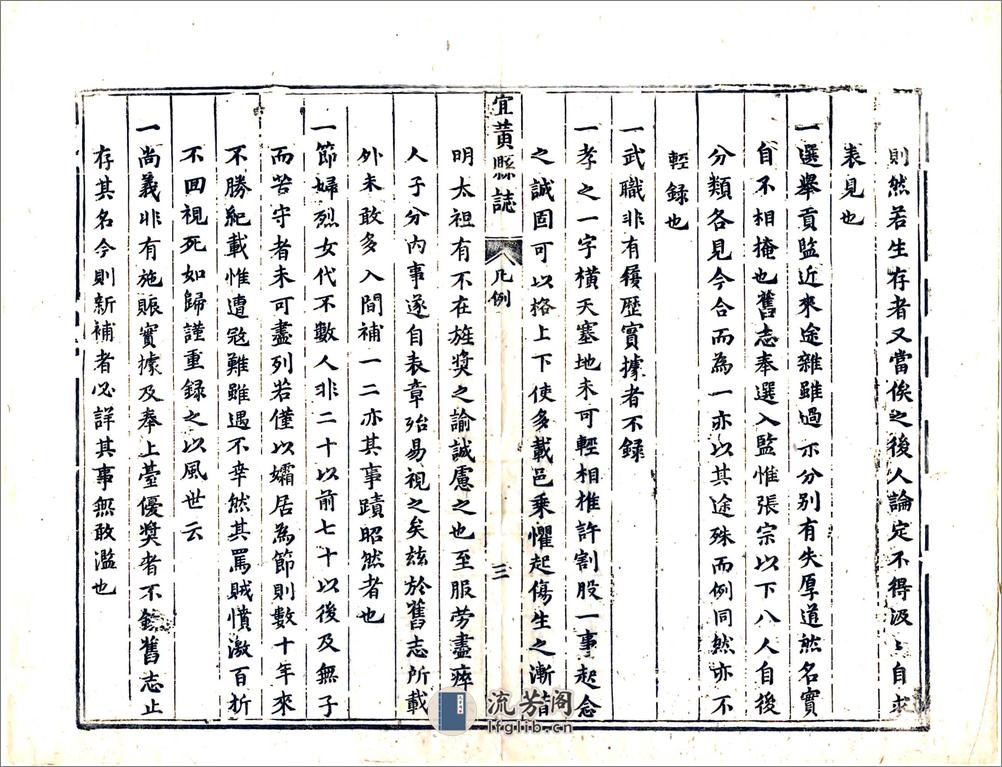 則然若生存者又當俟之後人論定不得汲〻自求
表見也
一選舉貢監近來途雜雖過示分别有失厚道然名實
自不相掩也舊志奉選入監惟張宗以下八人自後
分類各見今合而為一亦以其途殊而例同然亦不
輕録也
一武職非有履歷實據者不録
一孝之一字横天塞地未可輕相推許割股一事起念
之誠固可以格上下使多載邑乘懼起傷生之漸
明太祖有不在旌奬之諭誠慮之也至服劳盡瘁
人子分内事遂自表章殆易視之矣兹於舊志所載
外未敢多入間補一二亦其事蹟昭然者也
一節婦烈女代不數人非二十以前七十以後及無子
而苦守者未可盡列若僅以孀居為節則數十年來
不勝紀載惟遭冦難雖遇不幸然其罵賊憤激百折
不回視死如歸謹重録之以風世云
一尚義非有施賑實據及奉上臺優奬者不録舊志止
存其名今則新補者必詳其事無敢濫也
宜黄縣誌
凡例
三
流芳阁
lfglib.cn